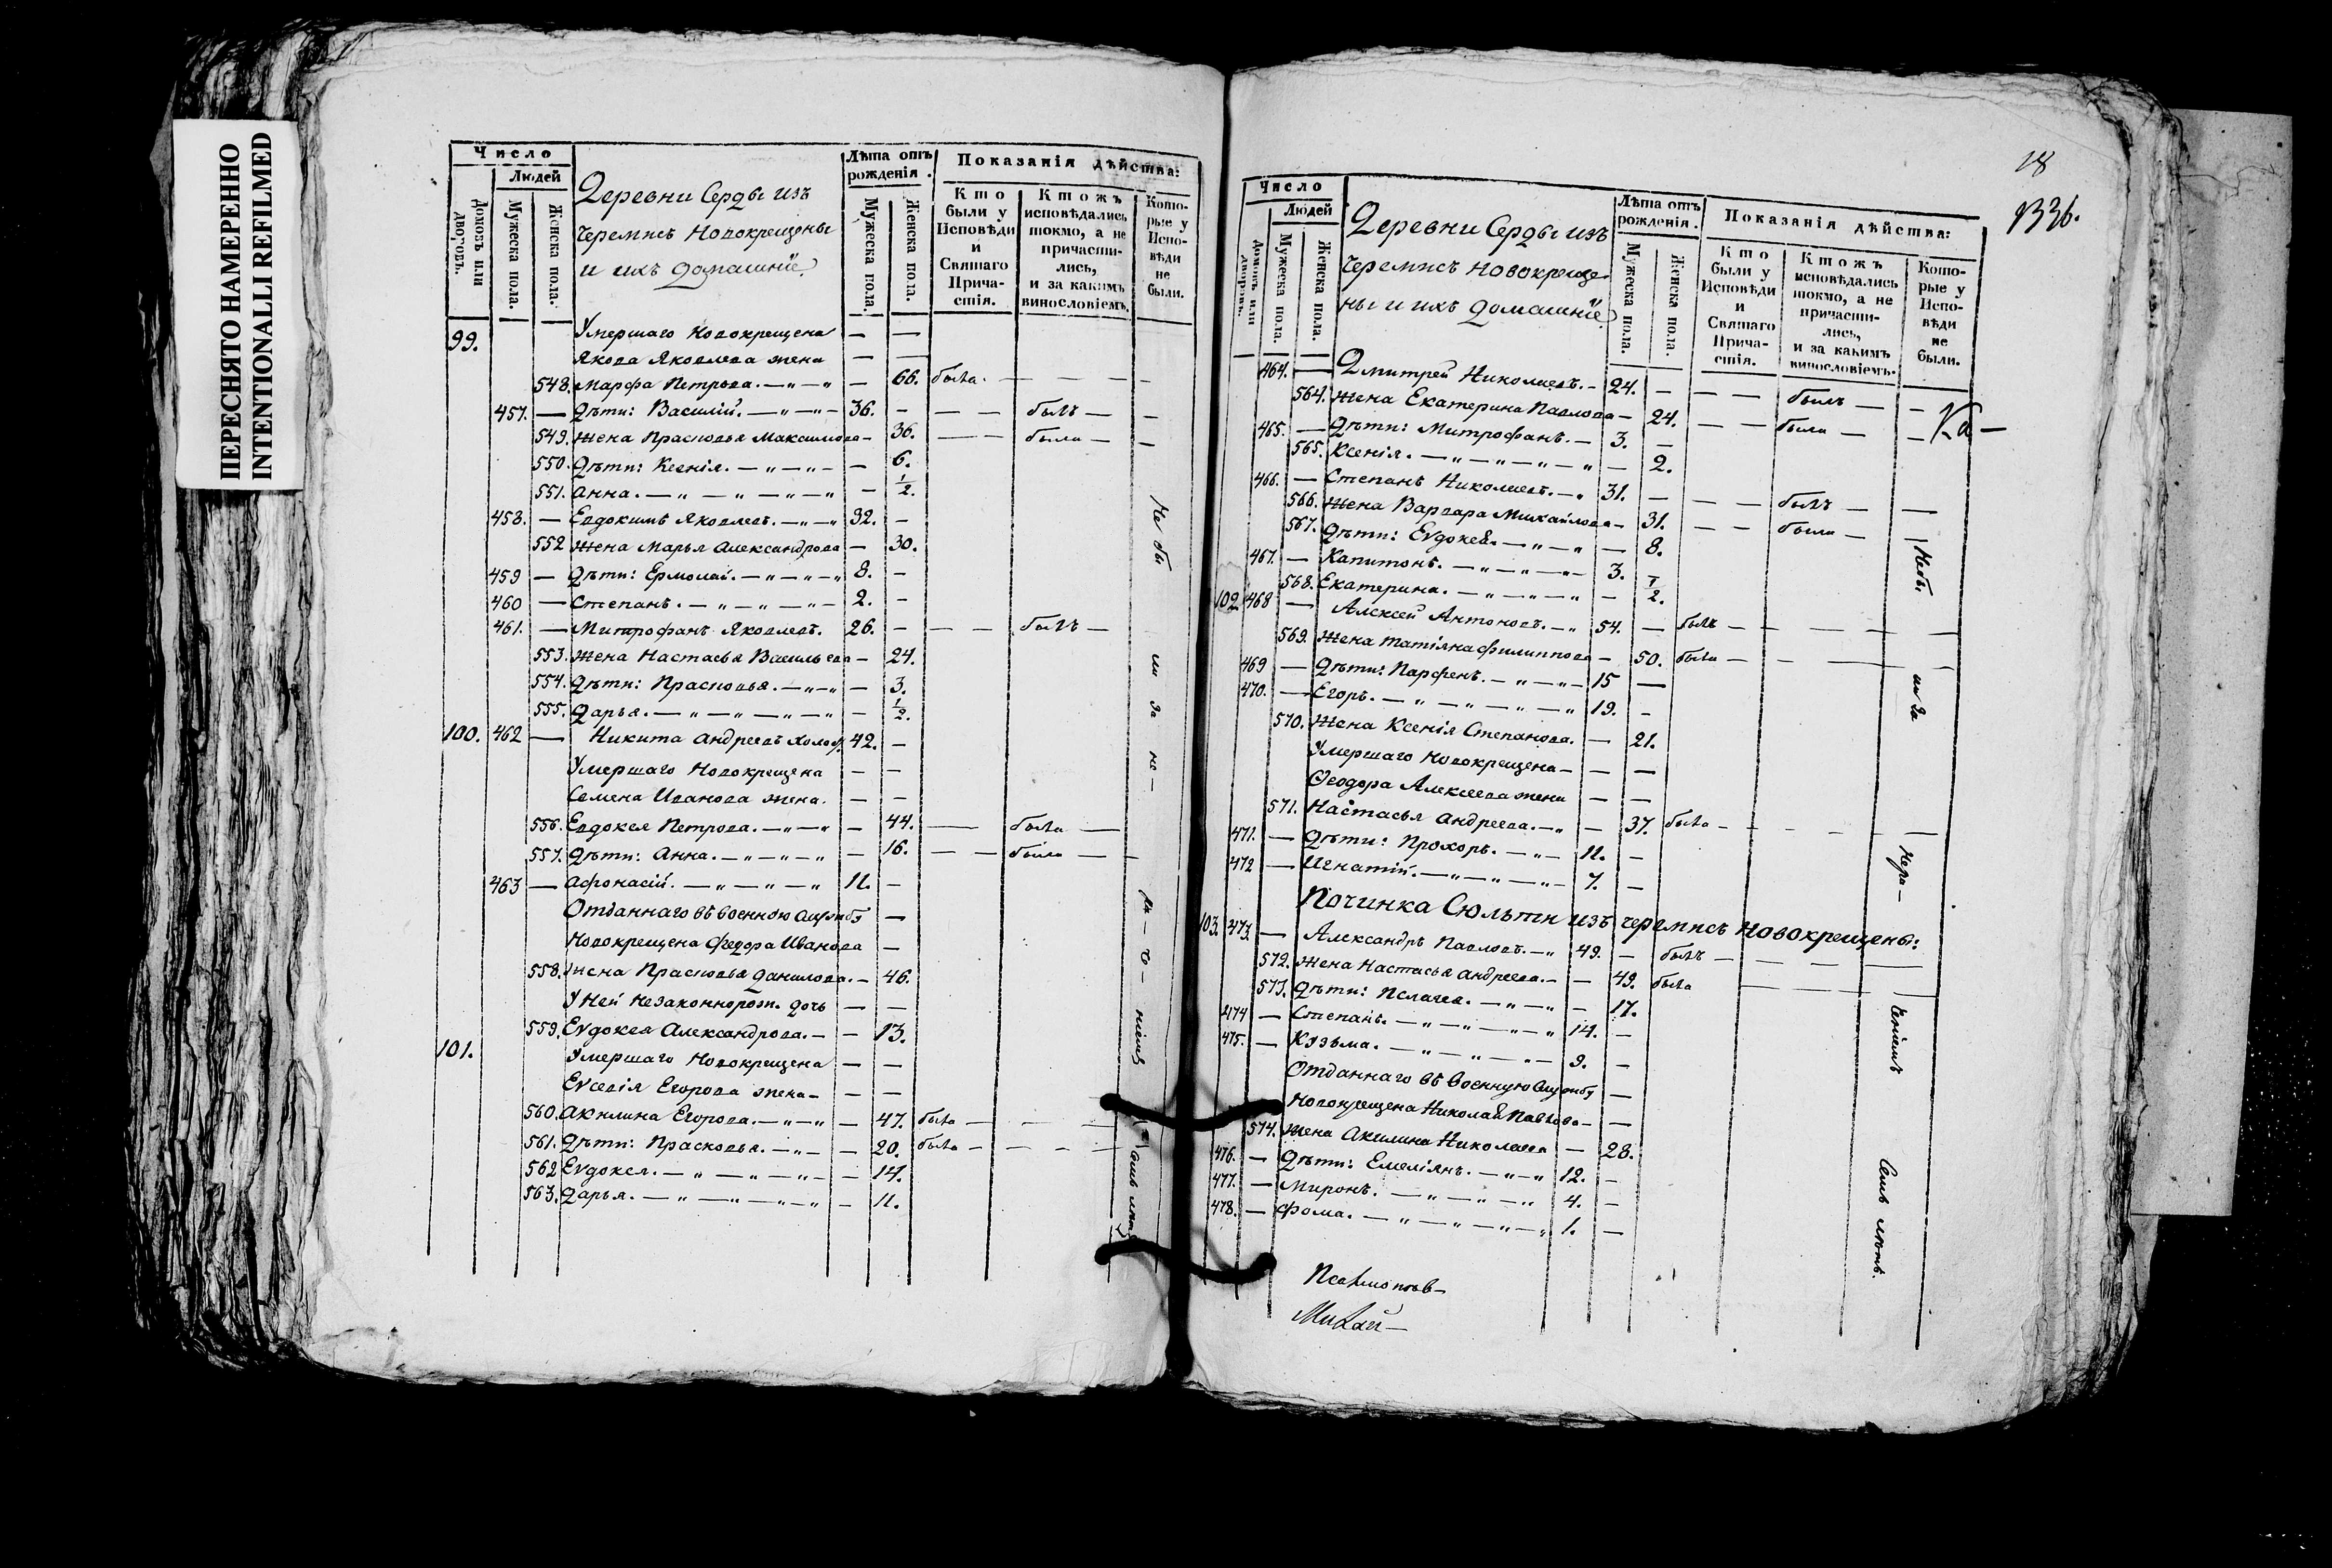 ПЕРЕСНЯТО НАМЕРЕННО
INTENTIONALLI REFILMED
Число
Людей
Домовъ или дворовъ.
Мужеска пола.
Женска пола.
Деревни Серды изъ
Черемисъ Новокрещены
и ихъ домашнїе
Лѣта отъ рожденія.
Мужеска пола.
Женска пола.
Показанія дѣйства:
Кто были у Исповѣди и Святаго Причастія.
Ктожъ исповѣдались токмо, а не причастились, и за какимъ винословіемъ.
Которые у Исповѣди не были.
99. Умершаго Новокрещена — —
Якова Яковлева жена — —
548. Марфа Петрова. — „ — „ — 66. была. — — — —
457. — Дѣти: Василій. — „ — „ — 36. - — — былъ — —
549. Жена Прасковья Максимова — 36. — — была — —
550. Дѣти: Ксенія. — „ — „ — — 6.
551. Анна. — „ — „ — „ — „ — 1/2.
458. — Евдокимъ Яковлевъ. — „ — „ 32. -
552 Жена Марья Александрова — 30.
459 — Дѣти: Ермолай. — „ — „ — „ 8. -
460 — Степанъ. — „ — „ — „ — 2. -
461. — Митрофанъ Яковлевъ. 26. - — — былъ —
553. Жена Настасья Васильева — 24.
554. Дѣти: Прасковья. — „ — „ — 3.
555. Дарья. — „ — „ — „ — „ — 1/2.
100. 462 — Никита Андреевъ холос. 42. -
Умершаго Новокрещена — —
Семена Иванова жена. — —
556. Евдокея Петрова. — „ — „ — 44. — была —
557. Дѣти: Анна. — „ — „ — „ — 16. — — была — —
463 — Афонасій. — „ — „ — „ 11. -
Отданнаго въ военною службу —
Новокрещена Федора Иванова —
558. Жена Прасковья Данилова. — 46.
У Ней Незаконнорож. дочь — —
559. Еѵдокея Александрова. — — 13.
101. Умершаго Новокрещена — —
Еѵсевія Егорова жена — — —
560. Акилина Егорова. — „ — „ — 47. была — — —
561. Дѣти: Прасковья. — „ — — 20. была — — - —
562 Еѵдокея. — „ — „ — „ — — 14.
563. Дарья. — „ — „ — „ — „ — 11.
Не бы ли за не ра че ніемъ
18
1336.
Число
Людей
Домовъ или дворовъ.
Мужеска пола.
Женска пола.
Деревни Серды изъ
Черемисъ Новокреще-
ны и ихъ домашнїе
Лѣта отъ рожденія.
Мужеска пола.
Женска пола.
Показанія дѣйства:
Кто были у Исповѣди и Святаго Причастія.
Ктожъ исповѣдались токмо, а не причастились, и за какимъ винословіемъ.
Которые у Исповѣди не были.
464. — Дмитрей Николаевъ. — 24. — — — былъ — —
564. Жена Екатерина Павлова — 24. — — была — —
465. — Дѣти: Митрофанъ. — 3. —
565. Ксенія. — „ — „ — „ — „ — 2.
466. — Степанъ Николаевъ. — „ 31. — — — былъ — —
566. Жена Варвара Михайлова — 31. — — была — —
567. Дѣти: Еѵдокея. — „ — „ — 8.
467. — Капитонъ. — „ — „ — „ — 3.
568. Екатерина. — „ — „ — „ — 1/2.
102. 468 — Алексей Антоновъ. — „ 54. — былъ — — — —
569. Жена Татіяна Филиппова — 50. была — - — —
469 — Дѣти: Парфенъ. — „ — „ — 15 —
470. — Егоръ. — „ — „ — „ — „ 19. -
570. Жена Ксенія Степанова. — 21.
Умершаго Новокрещена — — —
Ѳеодора Алексеева жена — —
571. Настасья Андреева. — „ — 37. была - - - - —
471. — Дѣти: Прохоръ. — „ — 11. -
472 — Игнатій. — „ — „ — „ — 7. -
Починка Сюльти изъ черемисъ новокрещены:
103. 473. — Александръ Павловъ. — „ 49. — былъ — — — —
572. Жена Настасья Андреева. — — 49. была — — — —
573. Дѣти: Пелагея. — „ — „ — 17.
474 — Степанъ. — „ — „ — „ — „ 14. -
475. — Кузьма. — „ — „ — „ — 9. -
Отданнаго въ военную службу —
Новокрещена Николая Павлова — —
574. Жена Акилина Николаева — 28.
476. — Дѣти: Емеліянъ. — „ — „ 12. -
477. — Миронъ. — „ — „ — „ 4. -
478. — Фома. — „ — „ — „ — „ 1. —
Небы ли за нера ченіемъ